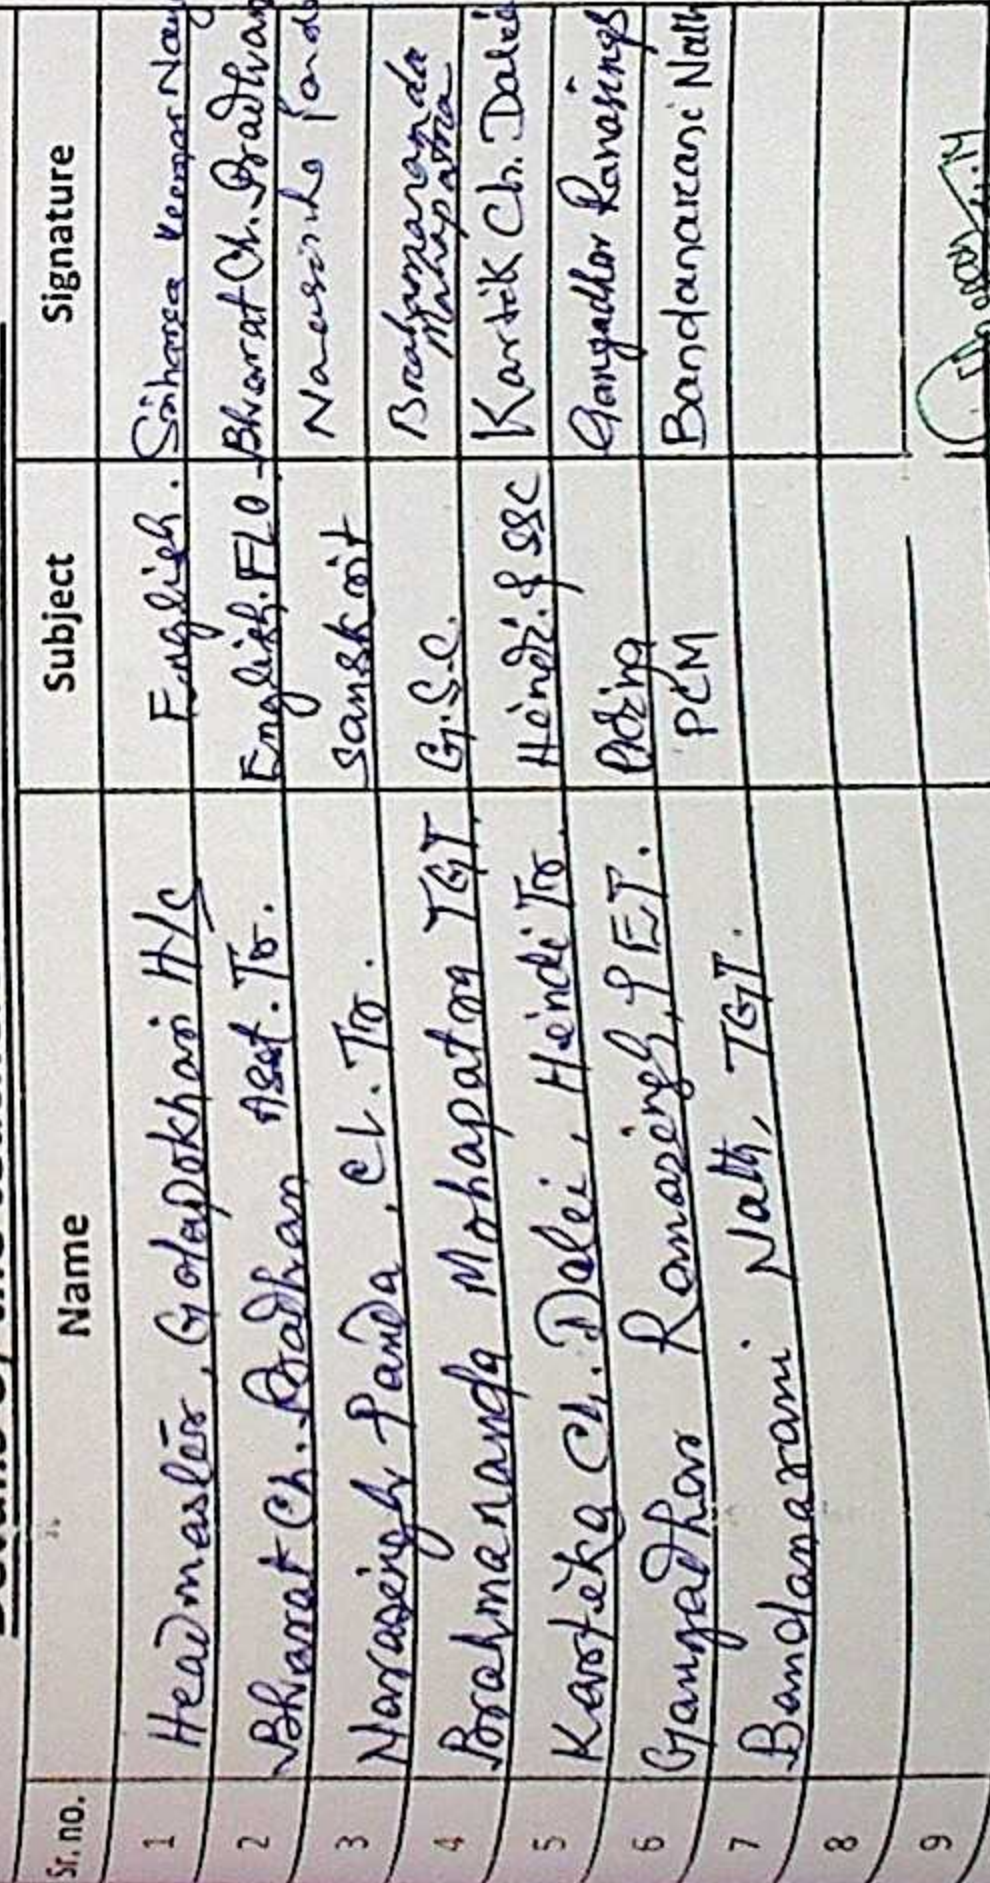 Sr. no. Name Subject Signature
1 Headmaster, Golapokhari H/S English.
2 Bharat Ch. Pradhan Asst. Tr. English. FLO Bharat Ch. Pradhan
3 Narasingh Panda, Cl. Tr. Sanskrit
4 Brahmananda Mohapatra TGT. G.Sc. Brahmananda Mahapatra
5 Kartika Ch. Dalei, Hindi Tr. Hindi & SSC Kartik Ch. Dalei
6 Gangadhar Ranasingh, PET. Gangadhar Ranasingh
7 Bandanarani Nath, TGT. PCM Bandanarani Nath
8
9